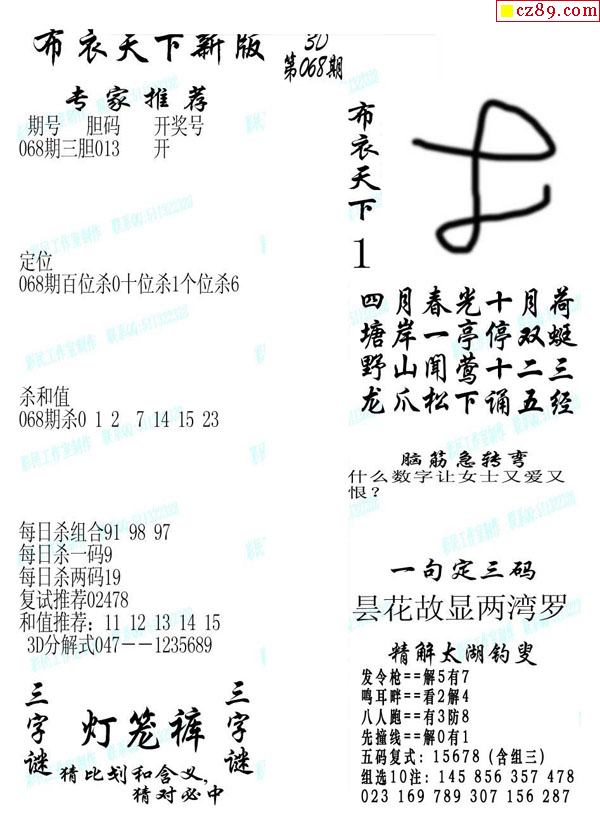 cz89.com
布衣天下新版
3D
第068期
专家推荐
期号 胆码 开奖号
068期三胆013 开
定位
068期百位杀0十位杀1个位杀6
杀和值
068期杀0 1 2 7 14 15 23
每日杀组合91 98 97
每日杀一码9
每日杀两码19
复试推荐02478
和值推荐：11 12 13 14 15
3D分解式047--1235689
三字谜
灯笼裤
三字谜
猜比划和含义,
猜对必中
布衣天下
1
四月春光十月荷
塘岸一亭停双蜓
野山闻莺十二三
龙爪松下诵五经
脑筋急转弯
什么数字让女士又爱又
恨？
一句定三码
昙花故显两湾罗
精解太湖钓叟
发令枪==解5有7
鸣耳畔==看2解4
八人跑==有3防8
先撞线==解0有1
五码复式：15678（含组三）
组选10注：145 856 357 478
023 169 789 307 156 287
彩民工作室制作 联系QQ:511322320